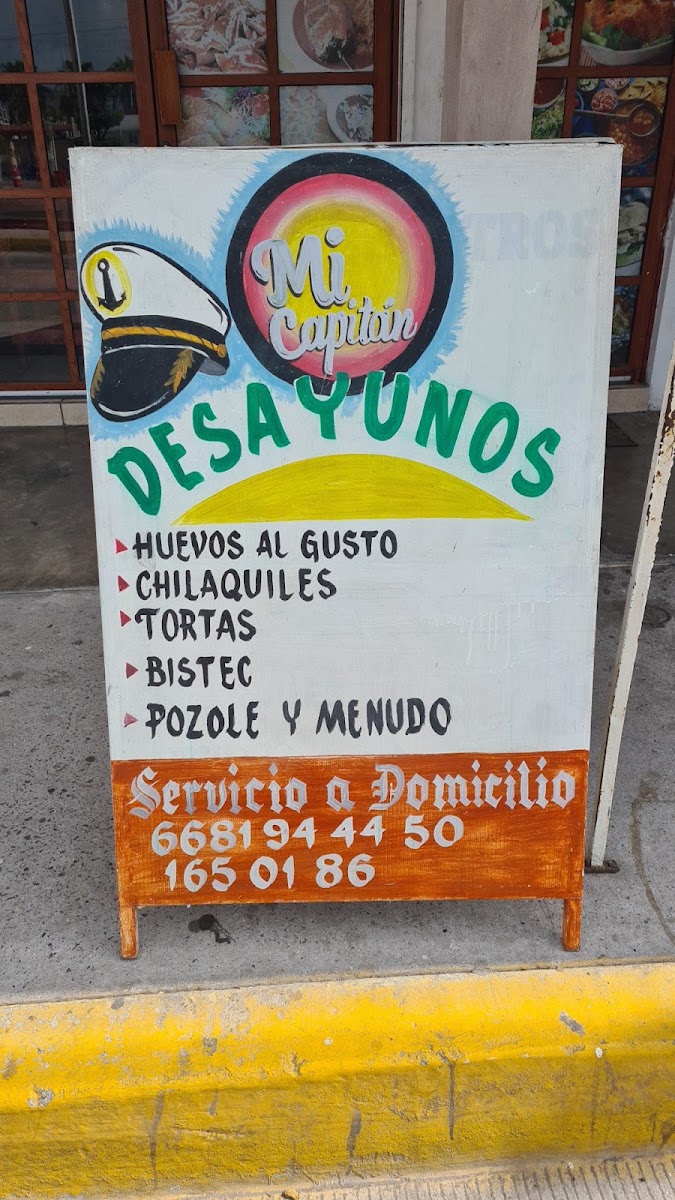 Mi
Capitán
DESAYUNOS
HUEVOS AL GUSTO
CHILAQUILES
TORTAS
BISTEC
POZOLE Y MENUDO
Servicio a Domicilio
6681 94 44 50
165 01 86